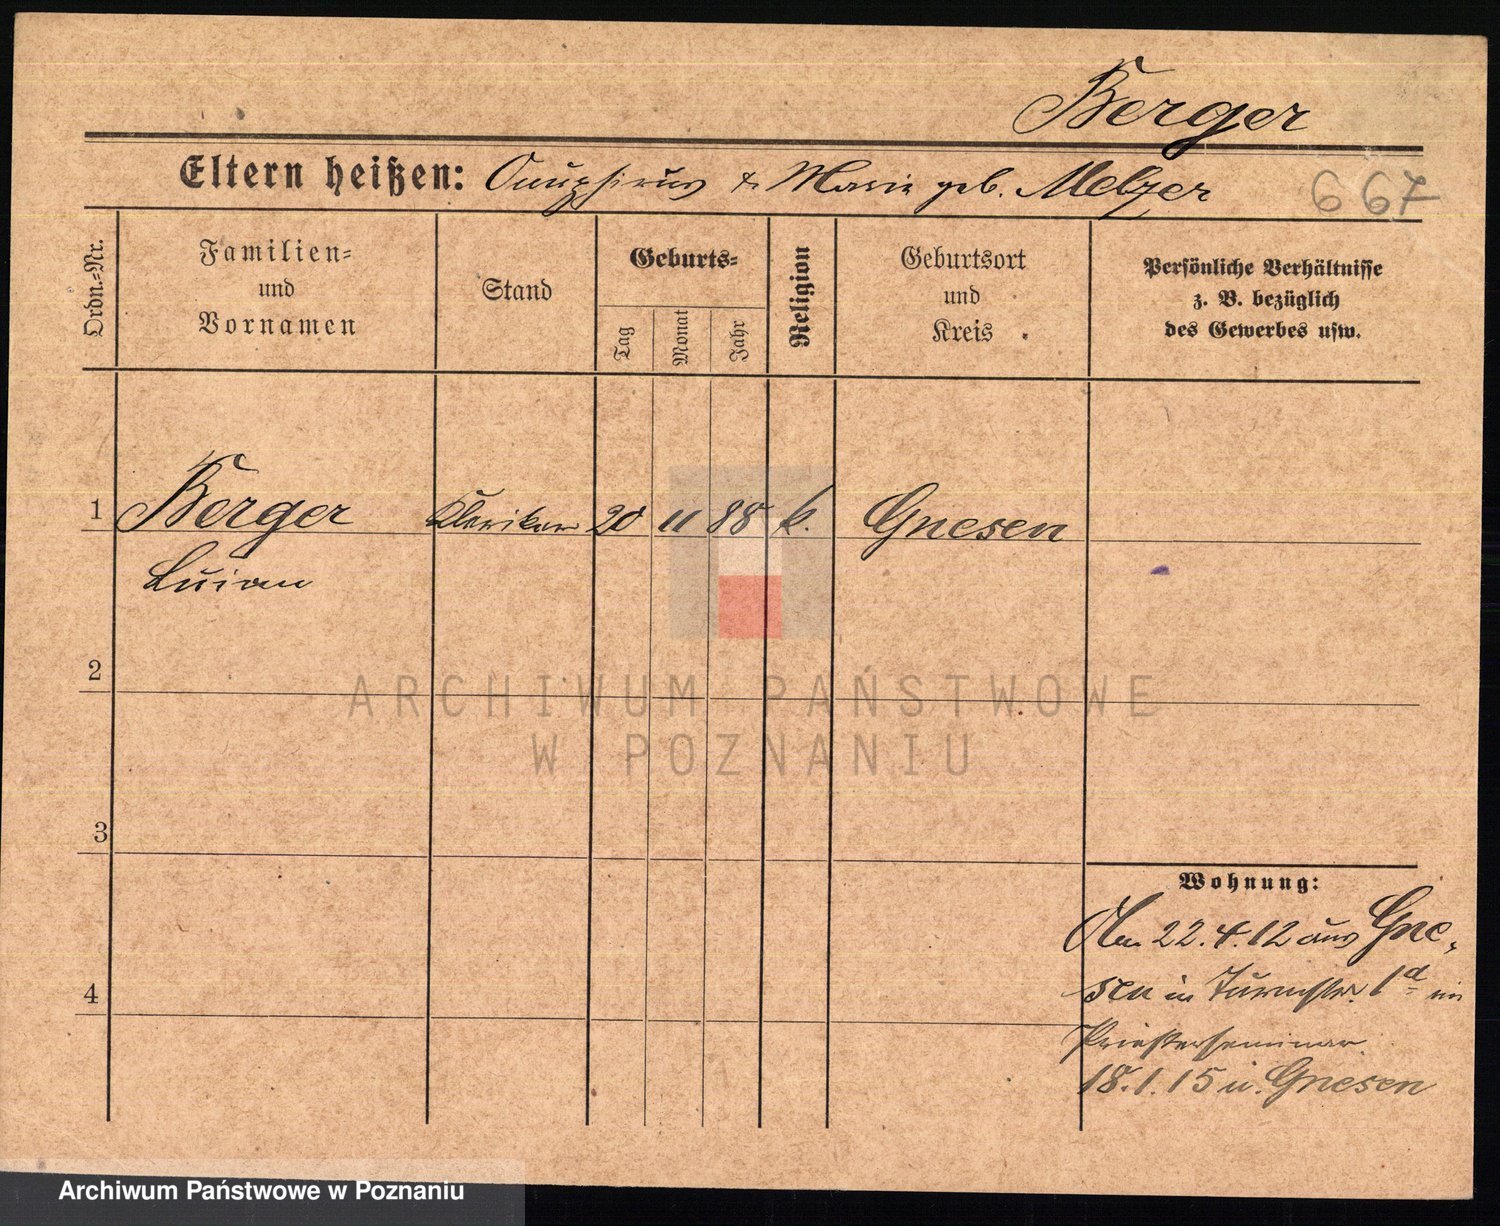 Berger
Eltern heißen: Onuphrius & Marie geb. Melzer
667
Ordn.=Nr.
Familien=
und
Vornamen
Stand
Geburts=
Tag
Monat
Jahr
Religion
Geburtsort
und
Kreis
Persönliche Verhältnisse
z. B. bezüglich
des Gewerbes usw.
1 Berger Kleriker 20 11 88 k. Gnesen
2
3
4
Wohnung:
22.4.12 aus Gne-
sen in Turmstr. 1d im
Priesterseminar
18.1.15 n. Gnesen
ARCHIWUM PAŃSTWOWE
W POZNANIU
Archiwum Państwowe w Poznaniu